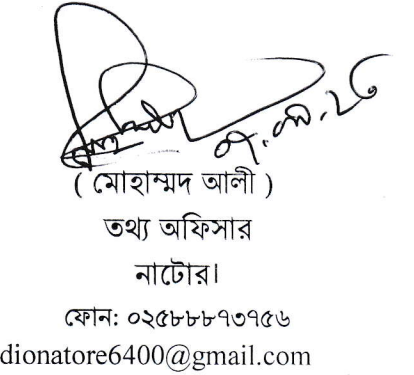 ( মোহাম্মদ আলী )
তথ্য অফিসার
নাটোর।
ফোন: ০২৫৮৮৮৭৩৭৫৬
dionatore6400@gmail.com